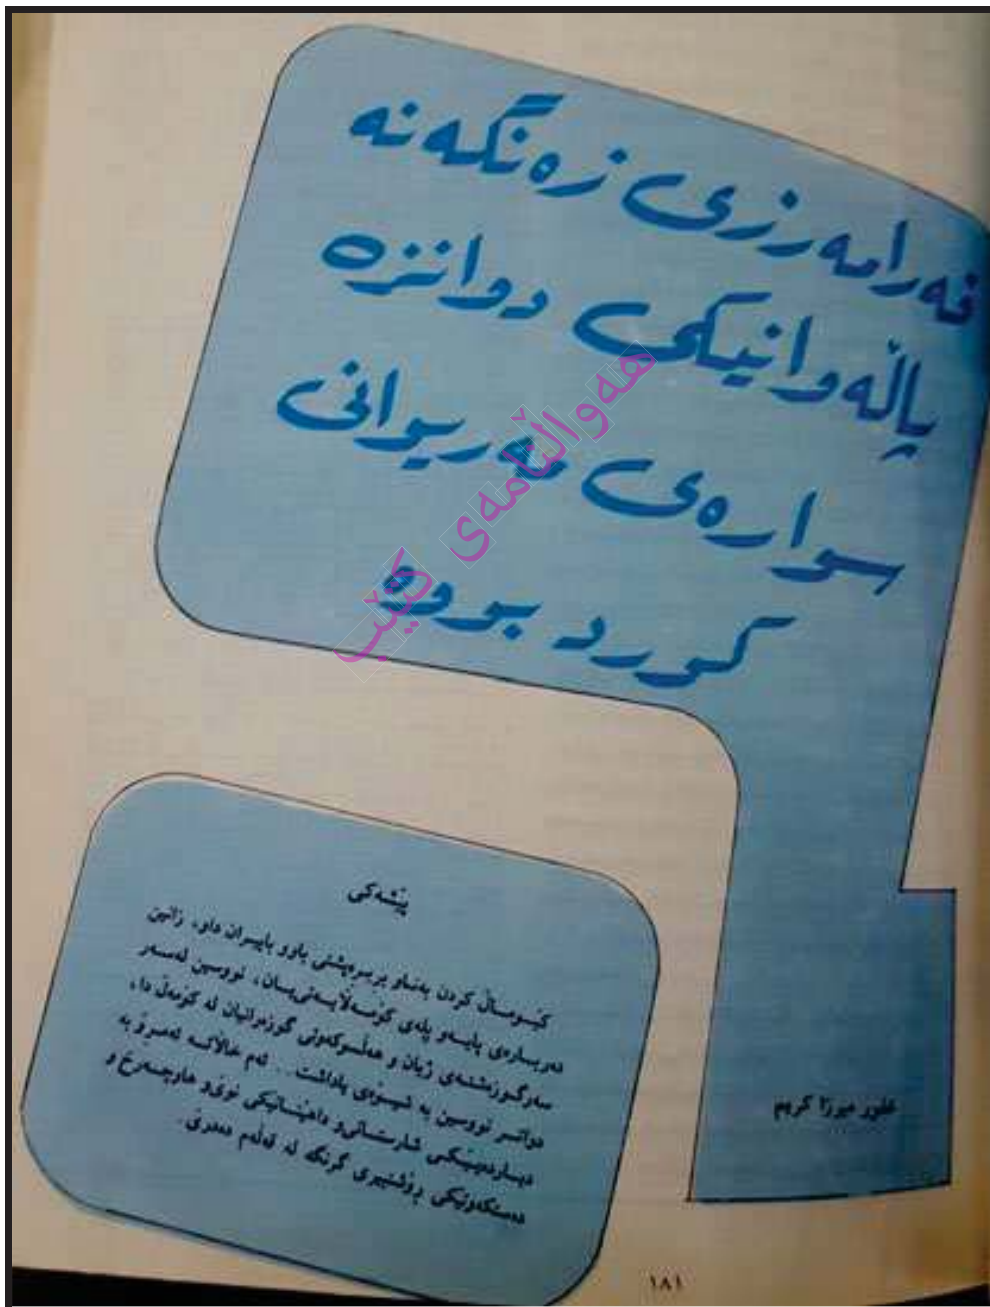 فەرامەرزی زەنگەنە
پاڵەوانیکی دوانزە
سوارەی مەریوانی
کورد بووە
هەواڵنامەی کتێب
پێشەکی
کنەوماڵ کردن بەناو بڕبڕەپشتی باوو باپیران داو، زانین
دەربارەی پایەو پلەی کۆمەڵایەتی‌یان، نووسین لەسەر
سەرگوزەشتەی ژیان و هەڵسوکەوتی گوزەرانیان لە کۆمەڵ دا،
دواتر نووسین بە شێوەی یاداشت.. ئەم خاڵانە ئەمڕۆ بە
دیاردەیێکی شارستانی‌و داهێنانیکی نوێ‌و هاوچەرخ و
دەستکەوتیکی ڕۆشنبیری گرنگە لە قەڵەم دەدرێ.
غفور میرزا کریم
١٨١